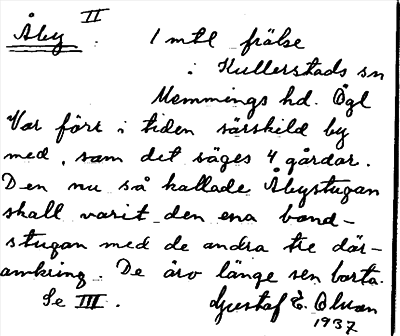 Åby II. 1 mtl frälse
i Kullerstads sn
Memmings hd. Ögl
Var förr i tiden särskild by
med, som det säges 4 gårdar.
Den nu så kallade Åbystugan
skall varit den ena bond-
stugan med de andra tre där-
omkring. De äro länge sen borta.
Se III. Gustaf E. Olsson
1937